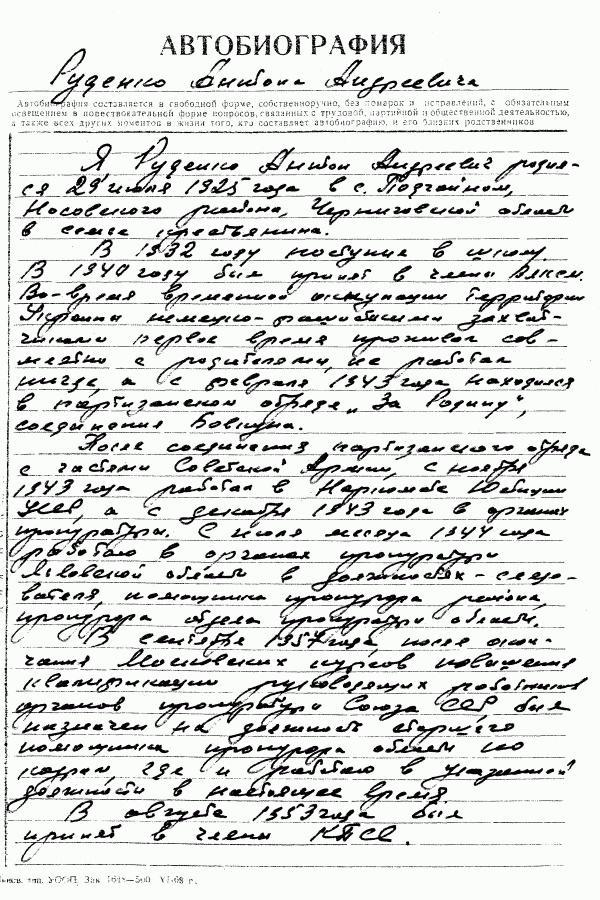 АВТОБИОГРАФИЯ
Руденко Антона Андреевича
Автобиография составляется в свободной форме, собственноручно, без помарок и исправлений, с обязательным
освещением в повествовательной форме вопросов, связанных с трудовой, партийной и общественной деятельностью,
а также всех других моментов в жизни того, кто составляет автобиографию, и его близких родственников
Я Руденко Антон Андреевич родил-
ся 29 июля 1925 года в с. Подгайном,
Носовского района, Черниговской области
в семье крестьянина.
В 1932 году поступил в школу.
В 1940 году был принят в члены ВЛКСМ.
Во-время временной оккупации территории
Украины немецко-фашистскими захват-
чиками первое время проживал сов-
местно с родителями, не работал
нигде, а с февраля 1943 года находился
в партизанском отряде „За Родину“,
соединения Бовкуна.
После соединения партизанского отряда
с частями Советской Армии, с ноября
1943 года работал в Наркомате Юстиции
УССР, а с декабря 1943 года в органах
прокуратуры. С июля месяца 1944 года
работаю в органах прокуратуры
Львовской области в должностях - следо-
вателя, помощника прокурора района,
прокурора отдела прокуратуры области.
В сентябре 1957 года, после окон-
чания Московских курсов повышения
квалификации руководящих работников
органов прокуратуры Союза ССР, был
назначен на должность старшего
помощника прокурора области по
кадрам, где и работаю в указанной
должности в настоящее время.
В августе 1953 года был
принят в члены КПСС.
тип. УООП, Зак. 1648—500